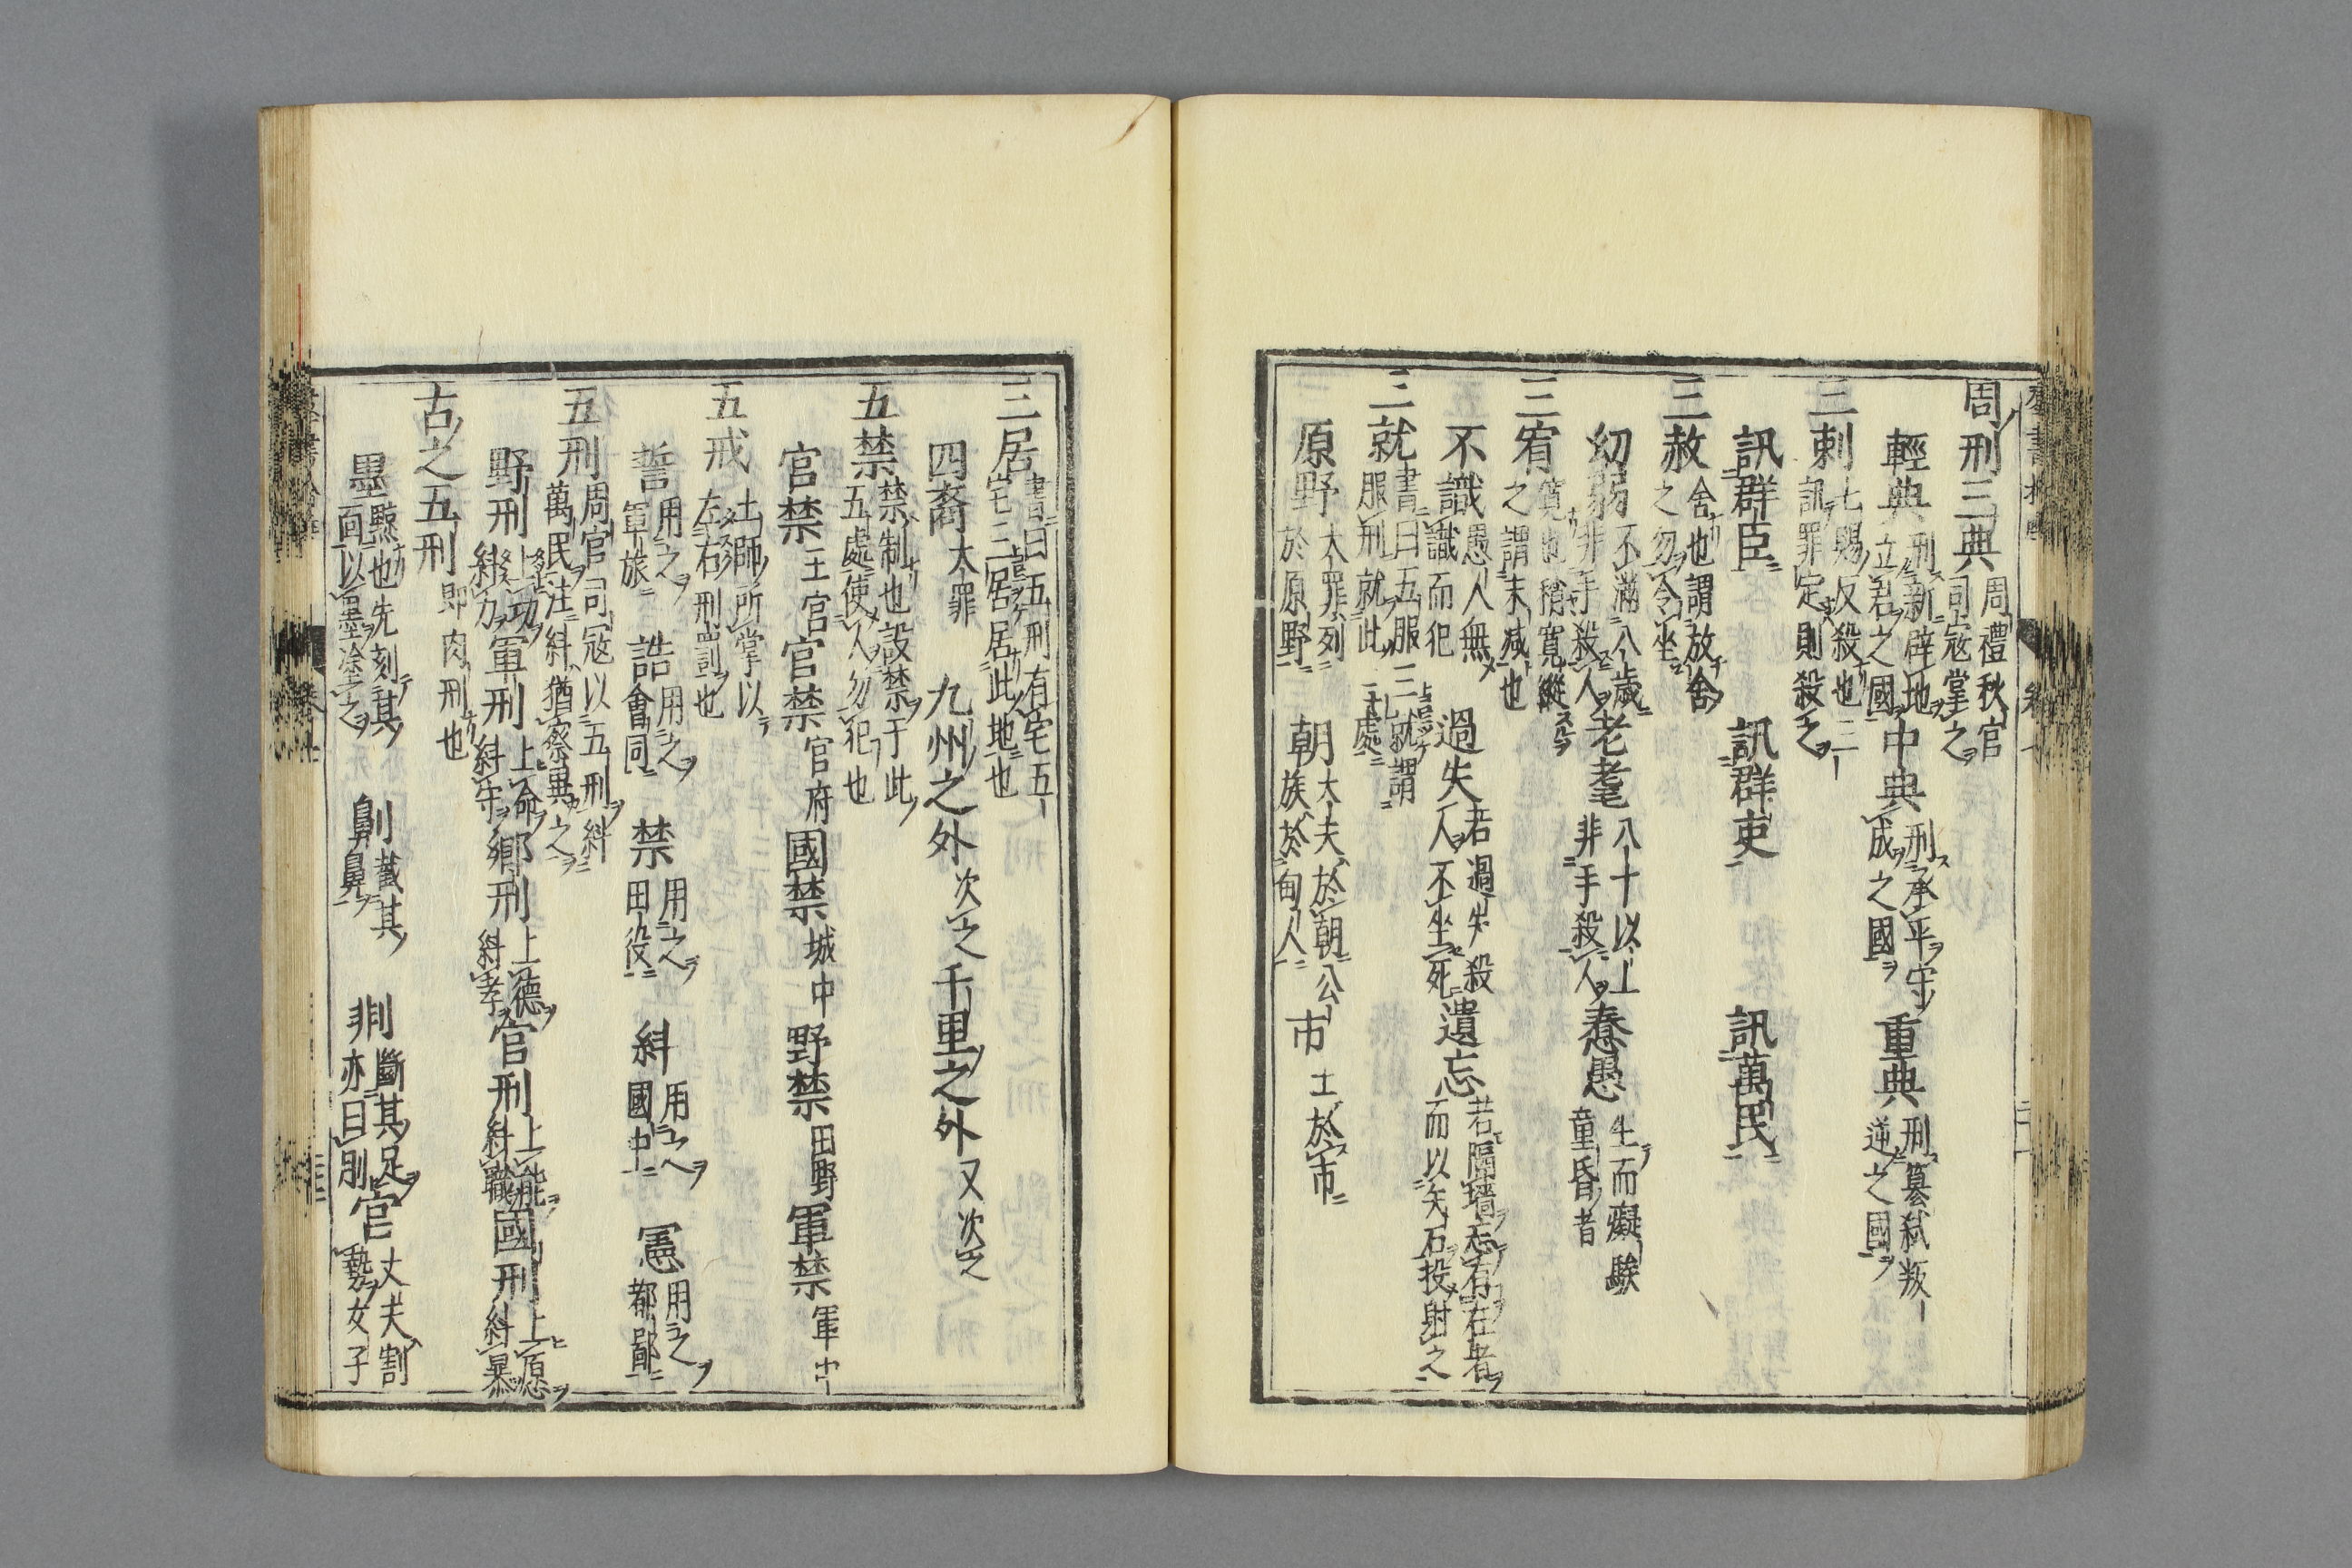 周刑三典 周禮秋官司寇掌之
輕典 刑新辟地立君之國 中典 刑承平守成之國 重典 刑簒弑叛逆之國
三刺 七賜反殺也三訊罪定則殺之
訊群臣 訊群吏 訊萬民
三赦 舍也謂放舍之勿令坐
幼弱 不滿八歲非手殺人 老耄 八十以上非手殺人 惷愚 生而癡騃童昏者
三宥 寛也稍寛縱之謂末减也
不識 愚人無識而犯 過失 若過失殺人不坐死 遺忘 若隔墻忘有在者而以矢石投射之
三就 書曰五服三就謂服刑就此三處
原野 大罪列於原野 朝 大夫於朝公族於甸人 市 士於市
三居 書曰五刑有宅五宅三居居此地也
四裔 大罪 九州之外 次之 千里之外 又次之
五禁 禁制也設禁于此五處使人勿犯也
宮禁 王宮 官禁 官府 國禁 城中 野禁 田野 軍禁 軍中
五戒 士師所掌以左右刑罰也
誓 用之軍旅 誥 用之會同 禁 用之田役 糾 用之國中 憲 用之都鄙
五刑 周官司冦以五刑糾萬民注糾猶察異之
野刑 上功糾力 軍刑 上命糾守 鄉刑 上德糾孝 官刑 上能糾職 國刑 上愿糾暴
古之五刑 即肉刑也
墨 黥也先刻其面以墨塗之 劓 截其鼻 剕 斷其足亦曰刖 宮 丈夫割勢女子